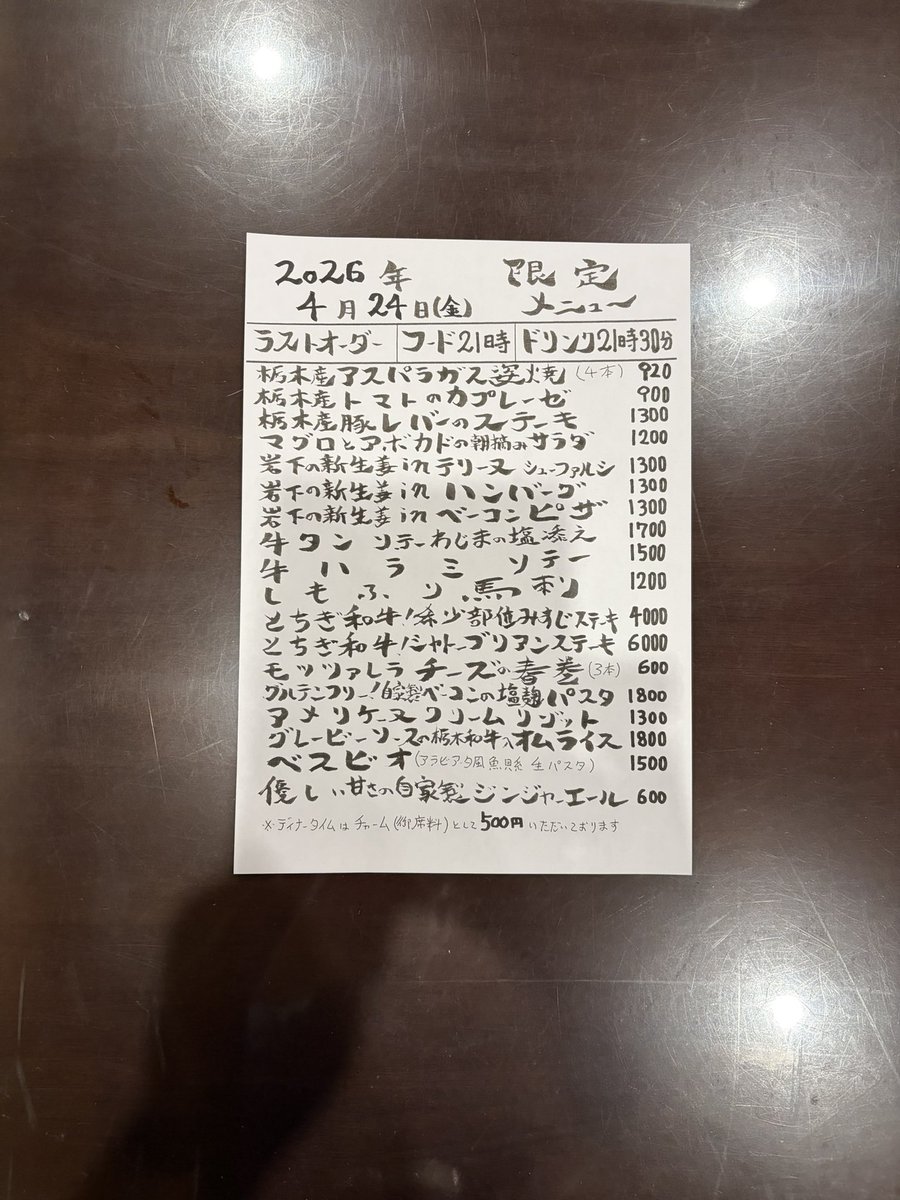 2026年 限定
4月24日(金) メニュー
ラストオーダー フード21時 ドリンク21時30分
栃木産アスパラガス窯焼(4本) 920
栃木産トマトのカプレーゼ 900
栃木産豚レバーのステーキ 1300
マグロとアボカドの朝摘みサラダ 1200
岩下の新生姜inテリーヌ シューファルシ 1300
岩下の新生姜inハンバーグ 1300
岩下の新生姜inベーコンピザ 1300
牛タンソテーわじまの塩添え 1700
牛ハラミソテー 1500
しもふり馬刺 1200
とちぎ和牛!希少部位みすじステーキ 4000
とちぎ和牛!シャトーブリアンステーキ 6000
モッツァレラチーズの春巻(3本) 600
グルテンフリー!自家製ベーコンの塩麹パスタ 1800
アメリケーヌクリームリゾット 1300
グレービーソースの栃木和牛入オムライス 1800
ベスビオ(アラビアータ風魚介 生パスタ) 1500
優しい甘さの自家製ジンジャーエール 600
※ディナータイムはチャーム(御席料)として500円いただいております